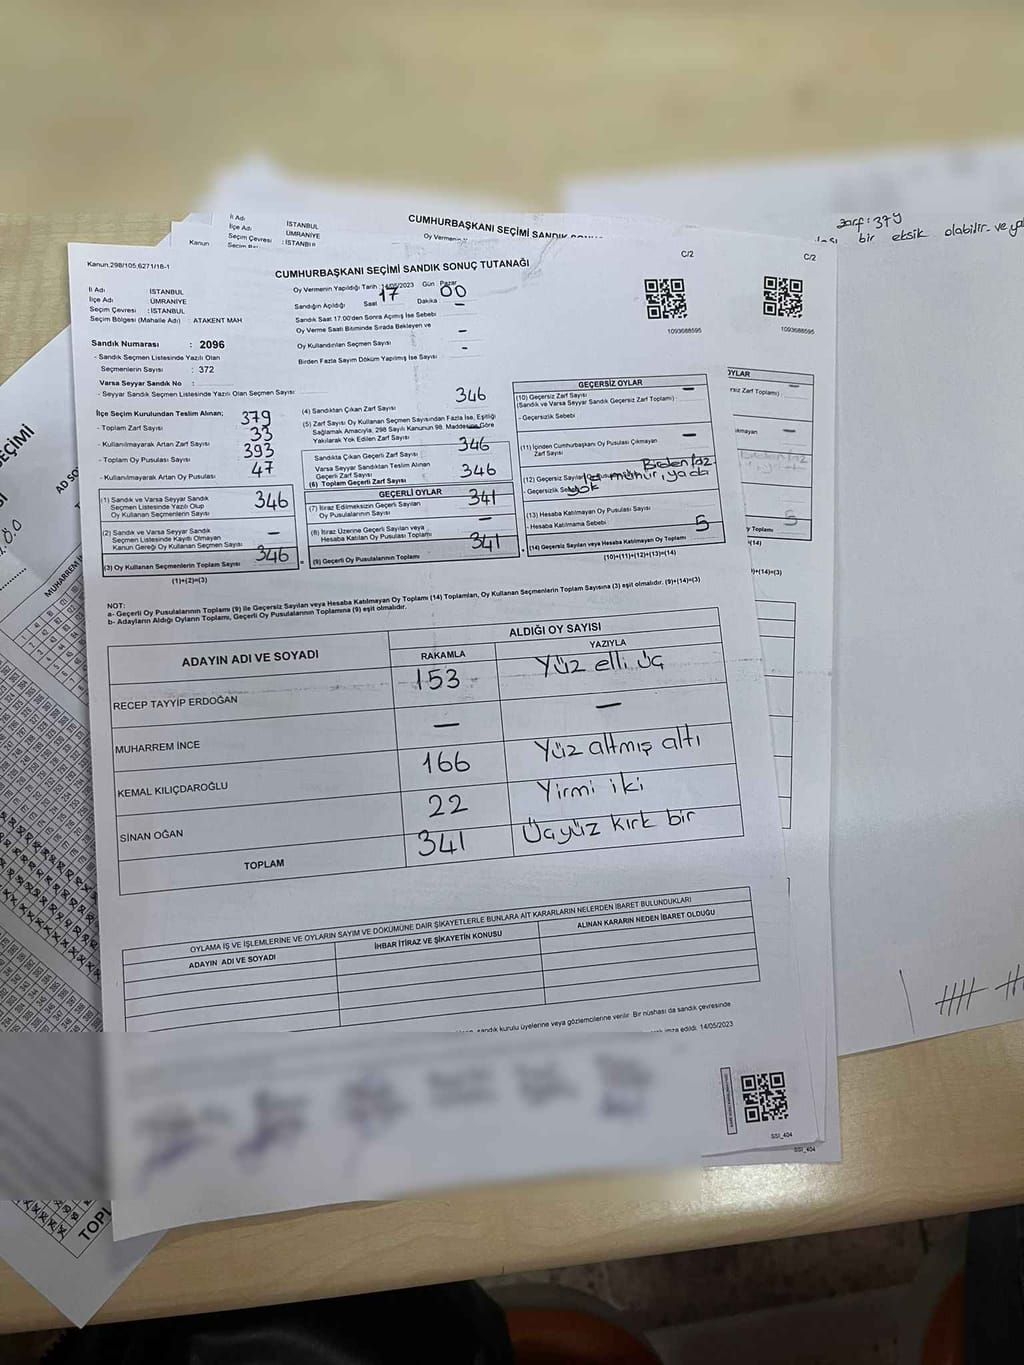 İl Adı İSTANBUL
İlçe Adı ÜMRANİYE
Seçim Çevresi : İSTANBUL
CUMHURBAŞKANI SEÇİMİ SANDIK
Kanun
zarf: 379
bir eksik olabilir veya
C/2
Kanun.298/105,6271/16-1
CUMHURBAŞKANI SEÇİMİ SANDIK SONUÇ TUTANAĞI
C/2
İl Adı : İSTANBUL
İlçe Adı : ÜMRANİYE
Seçim Çevresi : İSTANBUL
Seçim Bölgesi (Mahalle Adı) : ATAKENT MAH
Oy Vermenin Yapıldığı Tarih : 14/05/2023 Gün Pazar
Sandığın Açıldığı Saat 17 Dakika 00
Sandık Saat 17.00'den Sonra Açılmış İse Sebebi –
Oy Verme Saati Bitiminde Sırada Bekleyen ve
Oy Kullandırılan Seçmen Sayısı –
Birden Fazla Sayım Döküm Yapılmış İse Sayısı –
1093688595
1093688595
Sandık Numarası : 2096
- Sandık Seçmen Listesinde Yazılı Olan
Seçmenlerin Sayısı : 372
Varsa Seyyar Sandık No :
- Seyyar Sandık Seçmen Listesinde Yazılı Olan Seçmen Sayısı
İlçe Seçim Kurulundan Teslim Alınan;
- Toplam Zarf Sayısı 379
- Kullanılmayarak Artan Zarf Sayısı 33
- Toplam Oy Pusulası Sayısı 393
- Kullanılmayarak Artan Oy Pusulası 47
(1) Sandık ve Varsa Seyyar Sandık
Seçmen Listesinde Yazılı Olup
Oy Kullanan Seçmenlerin Sayısı 346
(2) Sandık ve Varsa Seyyar Sandık
Seçmen Listesinde Kayıtlı Olmayan
Kanun Gereği Oy Kullanan Seçmen Sayısı –
(3) Oy Kullanan Seçmenlerin Toplam Sayısı 346
(1)+(2)=(3)
(4) Sandıktan Çıkan Zarf Sayısı 346
(5) Zarf Sayısı Oy Kullanan Seçmen Sayısından Fazla İse, Eşitliği
Sağlamak Amacıyla, 298 Sayılı Kanunun 98. Maddesine Göre
Yakılarak Yok Edilen Zarf Sayısı –
Sandıkta Çıkan Geçerli Zarf Sayısı 346
Varsa Seyyar Sandıktan Teslim Alınan
Geçerli Zarf Sayısı
(6) Toplam Geçerli Zarf Sayısı 346
GEÇERLİ OYLAR
(7) İtiraz Edilmeksizin Geçerli Sayılan
Oy Pusulasının Sayısı 341
(8) İtiraz Üzerine Geçerli Sayılan veya
Hesaba Katılan Oy Pusulası Toplamı –
(9) Geçerli Oy Pusulalarının Toplamı 341
GEÇERSİZ OYLAR
(10) Geçersiz Zarf Sayısı –
(Sandık ve Varsa Seyyar Sandık Geçersiz Zarf Toplamı) :
- Geçersizlik Sebebi
(11) İçinden Cumhurbaşkanı Oy Pusulası Çıkmayan
Zarf Sayısı –
(12) Geçersiz
- Geçersizlik
mühür, yada
yok
(13) Hesaba Katılmayan Oy Pusulası Sayısı
- Hesaba Katılmama Sebebi :
(14) Geçersiz Sayılan veya Hesaba Katılmayan Oy Toplamı 5
(10)+(11)+(12)+(13)=(14)
NOT:
a- Geçerli Oy Pusulalarının Toplamı (9) ile Geçersiz Sayılan veya Hesaba Katılmayan Oy Toplamı (14) Toplamları, Oy Kullanan Seçmenlerin Toplam Sayısına (3) eşit olmalıdır. (9)+(14)=(3)
b- Adayların Aldığı Oyların Toplamı, Geçerli Oy Pusulalarının Toplamına (9) eşit olmalıdır.
ADAYIN ADI VE SOYADI
ALDIĞI OY SAYISI
RAKAMLA YAZIYLA
RECEP TAYYİP ERDOĞAN 153 Yüz elli üç
MUHARREM İNCE – –
KEMAL KILIÇDAROĞLU 166 Yüz altmış altı
SİNAN OĞAN 22 Yirmi iki
TOPLAM 341 Üçyüz kırk bir
OYLAMA İŞ VE İŞLEMLERİNE VE OYLARIN SAYIM VE DÖKÜMÜNE DAİR ŞİKAYETLERLE BUNLARA AİT KARARLARIN NELERDEN İBARET BULUNDUKLARI
ADAYIN ADI VE SOYADI İHBAR İTİRAZ VE ŞİKAYETİN KONUSU ALINAN KARARIN NEDEN İBARET OLDUĞU
sandık kurulu üyelerine veya gözlemcilerine verilir. Bir nüshası da sandık çevresinde
imza edildi. 14/05/2023
SSI_404
SSI_404